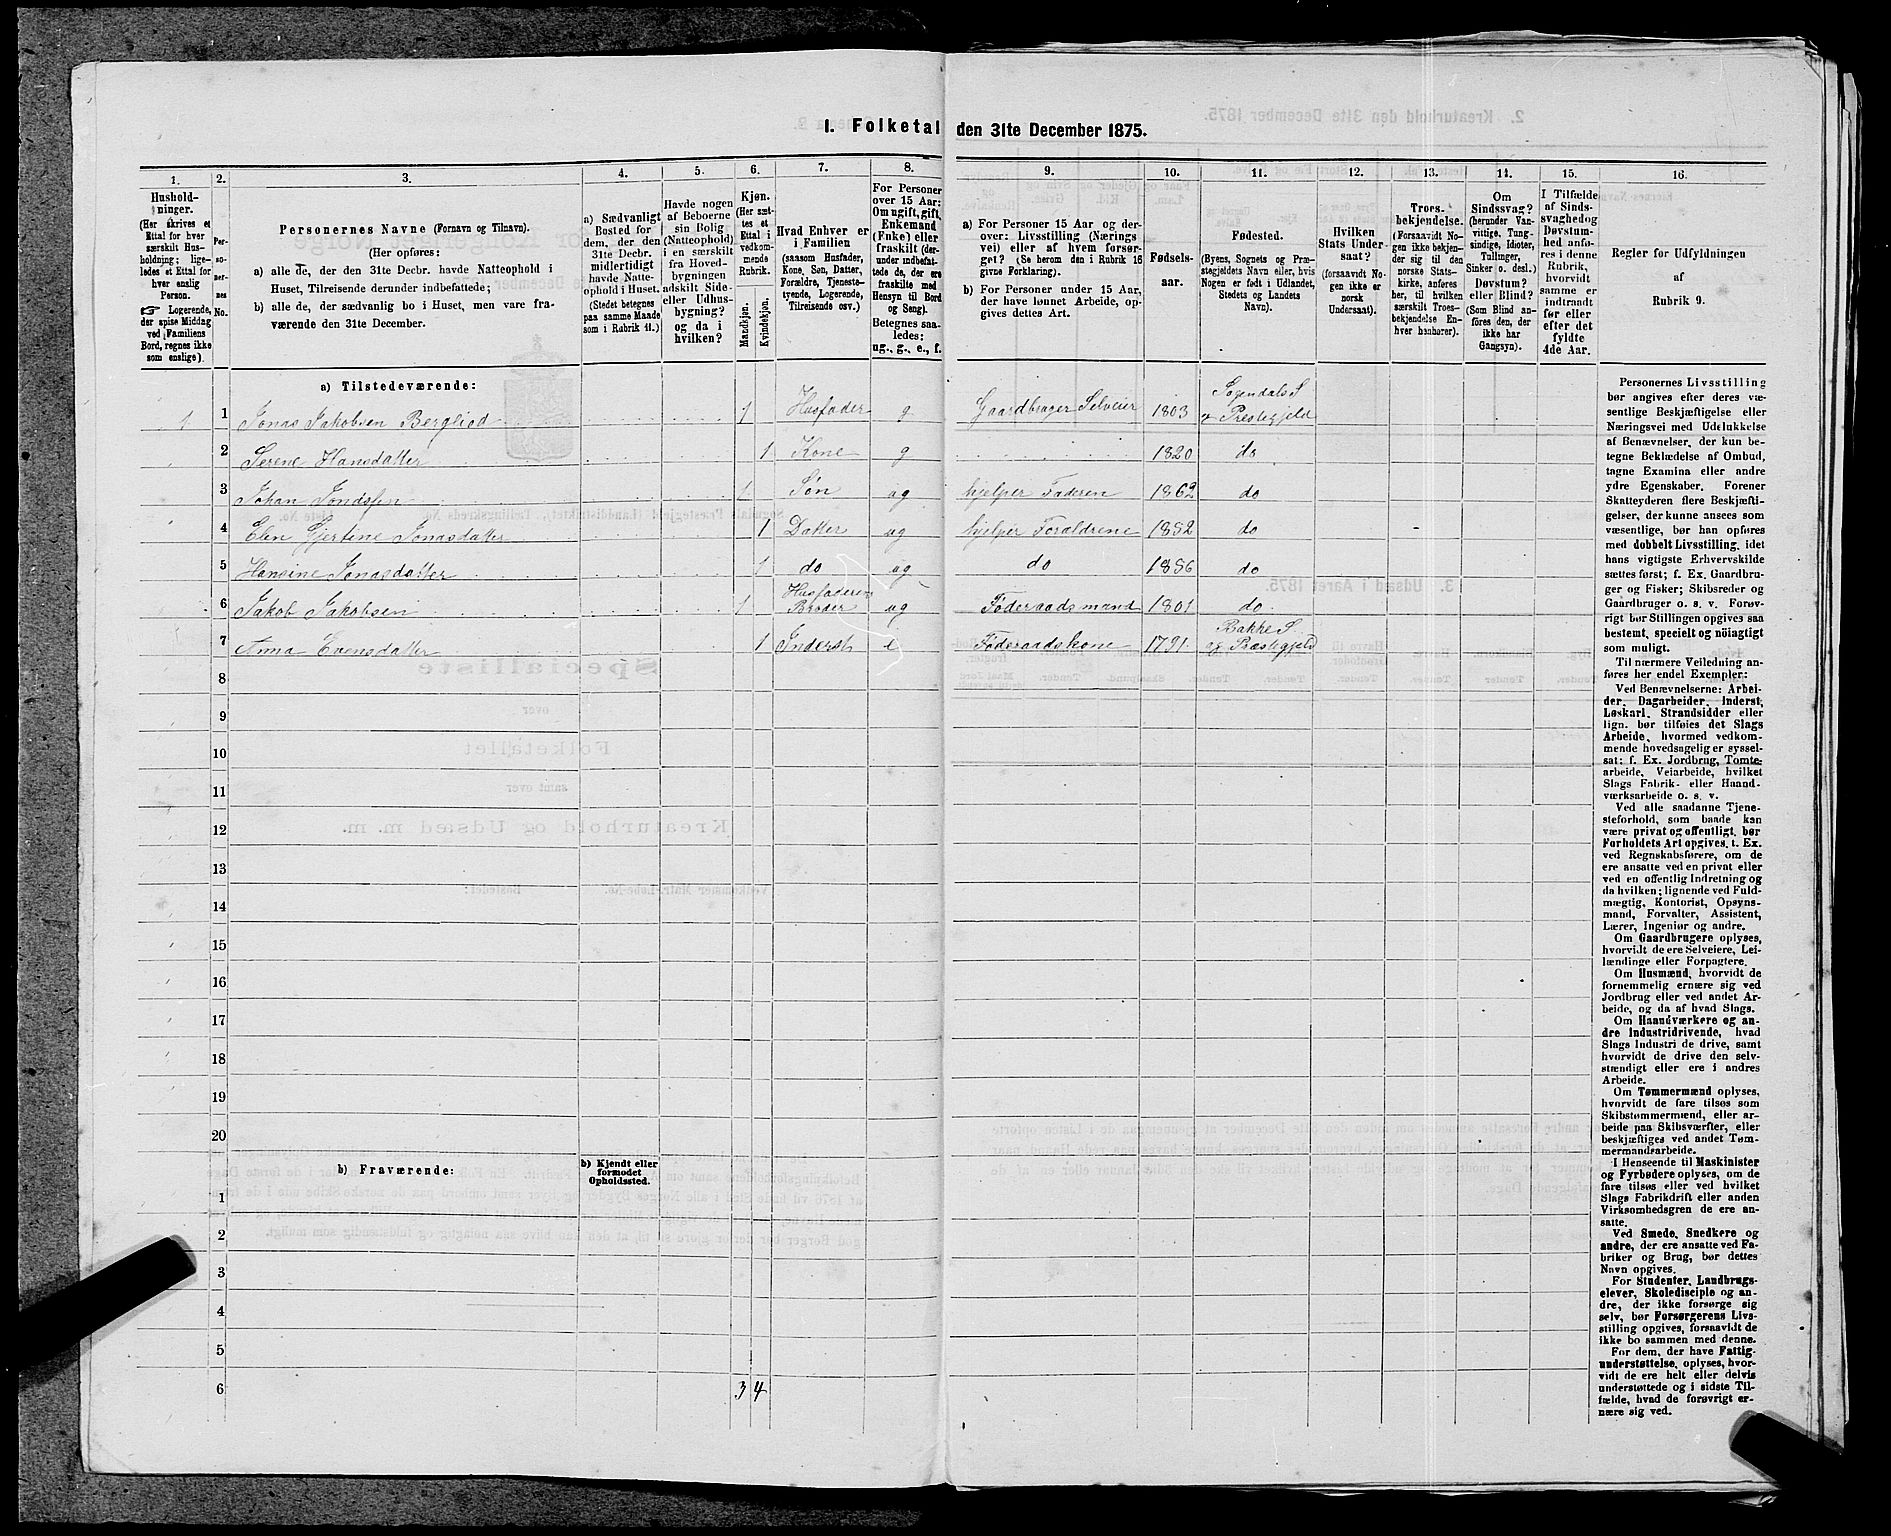 1. Folketal den 31te December 1875.
1.
Hushold-
ninger.
(Her skrives et
Ettal for hver
særskilt Hus-
holdning; lige-
ledes et Ettal for
hver enslig
Person.
☞ Logerende,
der spise Middag
ved Familiens
Bord, regnes ikke
som enslige).
2.
Per-
so-
ner-
nes
No.
3.
Personernes Navne (Fornavn og Tilnavn).
(Her opføres:
a) alle de, der den 31te Decbr. havde Natteophold i
Huset, Tilreisende derunder indbefattede;
b) alle de, der sædvanlig bo i Huset, men vare fra-
værende den 31te December.
4.
a) Sædvanligt
Bosted for
dem, der den
31te Decbr.
midlertidigt
havde Natte-
ophold i Huset.
(Stedet betegnes
paa samme Maade
som i Rubrik 11.)
5.
Havde nogen
af Beboerne
sin Bolig
(Natteophold)
i en særskilt
fra Hoved-
bygningen
adskilt Side-
eller Udhus-
bygning?
og da i
hvilken?
6.
Kjøn.
(Her sæt-
tes et
Ettal i
vedkom-
mende
Rubrik.
Mandkjøn.
Kvindekjøn.
7.
Hvad Enhver er
i Familien
(saasom Husfader,
Kone, Søn, Datter,
Forældre, Tjeneste-
tyende, Logerende,
Tilreisende osv.)
8.
For Personer
over 15 Aar:
Om ugift, gift,
Enkemand
(Enke) eller
fraskilt (der-
under indbefat-
tede de, der ere
fraskilte med
Hensyn til Bord
og Seng).
Betegnes saa-
ledes:
ug., g., e., f.
9.
a) For Personer 15 Aar og der-
over: Livsstilling (Nærings
vei) eller af hvem forsør-
get? (Se herom den i Rubrik 16
givne Forklaring).
b) For Personer under 15 Aar,
der have lønnet Arbeide, op-
gives dettes Art.
10.
Fødsels-
aar.
11.
Fødested.
(Byens, Sognets og Præ-
stegjeldets Navn eller, hvis
Nogen er født i Udlandet,
Stedets og Landets
Navn).
12.
Hvilken
Stats Under-
saat?
(forsaavidt No-
gen ikke er
norsk
Undersaat).
13.
Troes-
bekjendelse.
(Forsaavidt No-
gen ikke bekjen-
der sig til den
norske Stats-
kirke, anføres
her, til hvilken
særskilt Troes-
bekjendelse En-
hver henhører).
14.
Om
Sindssvag?
(herunder Van-
vittige, Tung-
sindige, Idioter,
Tullinger,
Sinker o. desl.)
Døvstum?
eller Blind?
(Som Blind an-
føres den, der
ikke har
Gangsyn).
15.
I Tilfælde
af Sinds-
svaghed og
Døvstum-
hed anfø-
res i denne
Rubrik,
hvorvidt
samme er
indtraadt
før eller
efter det
fyldte
4de Aar.
16.
Regler for Udfyldningen
af
Rubrik 9.
a) Tilstedeværende:
1 1 Jonas Jakobsen Berglied 1 Husfader g Gaardbruger Selveier 1803 Sogendals S
& Prestegjeld
2 Serene Hansdatter 1 Kone g 1820 do
3 Johan Jondssen 1 Søn ug hjelper Faderen 1862 do
4 Elen Gjertine Jonasdatter 1 Datter ug hjelper Foraldrene 1852 do
5 Hansine Jonasdatter 1 do ug do 1856 do
6 Jakob Jakobsen 1 Husfaderens
Broder ug Føderaadsmand 1801 do
7 Anna Evensdatter 1 Inderst e Føderaadskone 1791 Bakke S
og Præstegjeld
8
9
10
11
12
13
14
15
16
17
18
19
20
b) Fraværende:
b) Kjendt eller
formodet
Opholdssted.
1
2
3
4
5
6
3 4
Personernes Livsstilling
bør angives efter deres væ-
sentlige Beskjæftigelse eller
Næringsvei med Udelukkelse
af Benævnelser, der kun be-
tegne Beklædelse af Ombud,
tagne Examina eller andre
ydre Egenskaber. Forener
Skatteyderen flere Beskjæfti-
gelser, der kunne ansees som
væsentlige, bør han opføres
med dobbelt Livsstilling, idet
hans vigtigste Erhvervskilde
sættes først; f. Ex. Gaardbru-
ger og Fisker; Skibsreder og
Gaardbruger o. s. v. Forøv-
rigt bør Stillingen opgives saa
bestemt, specielt og nøiagtigt
som muligt.
Til nærmere Veiledning an-
føres her endel Exempler:
Ved Benævnelserne: Arbei-
der, Dagarbeider, Inderst,
Løskarl, Strandsidder eller
lign. bør tilføies det Slags
Arbeide, hvormed vedkom-
mende hovedsagelig er syssel-
sat; f. Ex. Jordbrug, Tomte-
arbeide, Veiarbeide, hvilket
Slags Fabrik- eller Haand-
værksarbeide o. s. v.
Ved alle saadanne Tjene-
steforhold, som baade kan
være privat og offentligt, bør
Forholdets Art opgives, t. Ex.
ved Regnskabsførere, om de
ere ansatte ved en privat eller
ved en offentlig Indretning og
da hvilken; lignende ved Fuld-
mægtig, Kontorist, Opsyns-
mand, Forvalter, Assistent,
Lærer, Ingeniør og andre.
Om Gaardbrugere oplyses,
hvorvidt de ere Selveiere, Lei-
lændinge eller Forpagtere.
Om Husmænd, hvorvidt de
fornemmelig ernære sig ved
Jordbrug eller ved andet Ar-
beide, og da af hvad Slags.
Om Haandværkere og an-
dre Industridrivende, hvad
Slags Industri de drive, samt
hvorvidt de drive den selv-
stændigt eller ere i andres
Arbeide.
Om Tømmermænd oplyses,
hvorvidt de fare tilsøs som
Skibstømmermænd, eller ar-
beide paa Skibsværfter, eller
beskjæftiges ved andet Tøm-
mermandsarbeide.
I Henseende til Maskinister
og Fyrbødere oplyses, om de
fare tilsøs eller ved hvilket
Slags Fabrikdrift eller anden
Virksomhedsgren de ere an-
satte.
Ved Smede, Snedkere og
andre, der ere ansatte ved Fa-
briker og Brug, bør dettes
Navn opgives.
For Studenter, Landbrugs-
elever, Skoledisciple og an-
dre, der ikke forsørge sig
selv, bør Forsørgerens Livs-
stilling opgives, forsaavidt de
ikke bo sammen med denne.
For dem, der have Fattig-
understøttelse, oplyses, hvor-
vidt de ere helt eller delvis
understøttede og i sidste Til-
fælde, hvad de forøvrigt er-
nære sig ved.